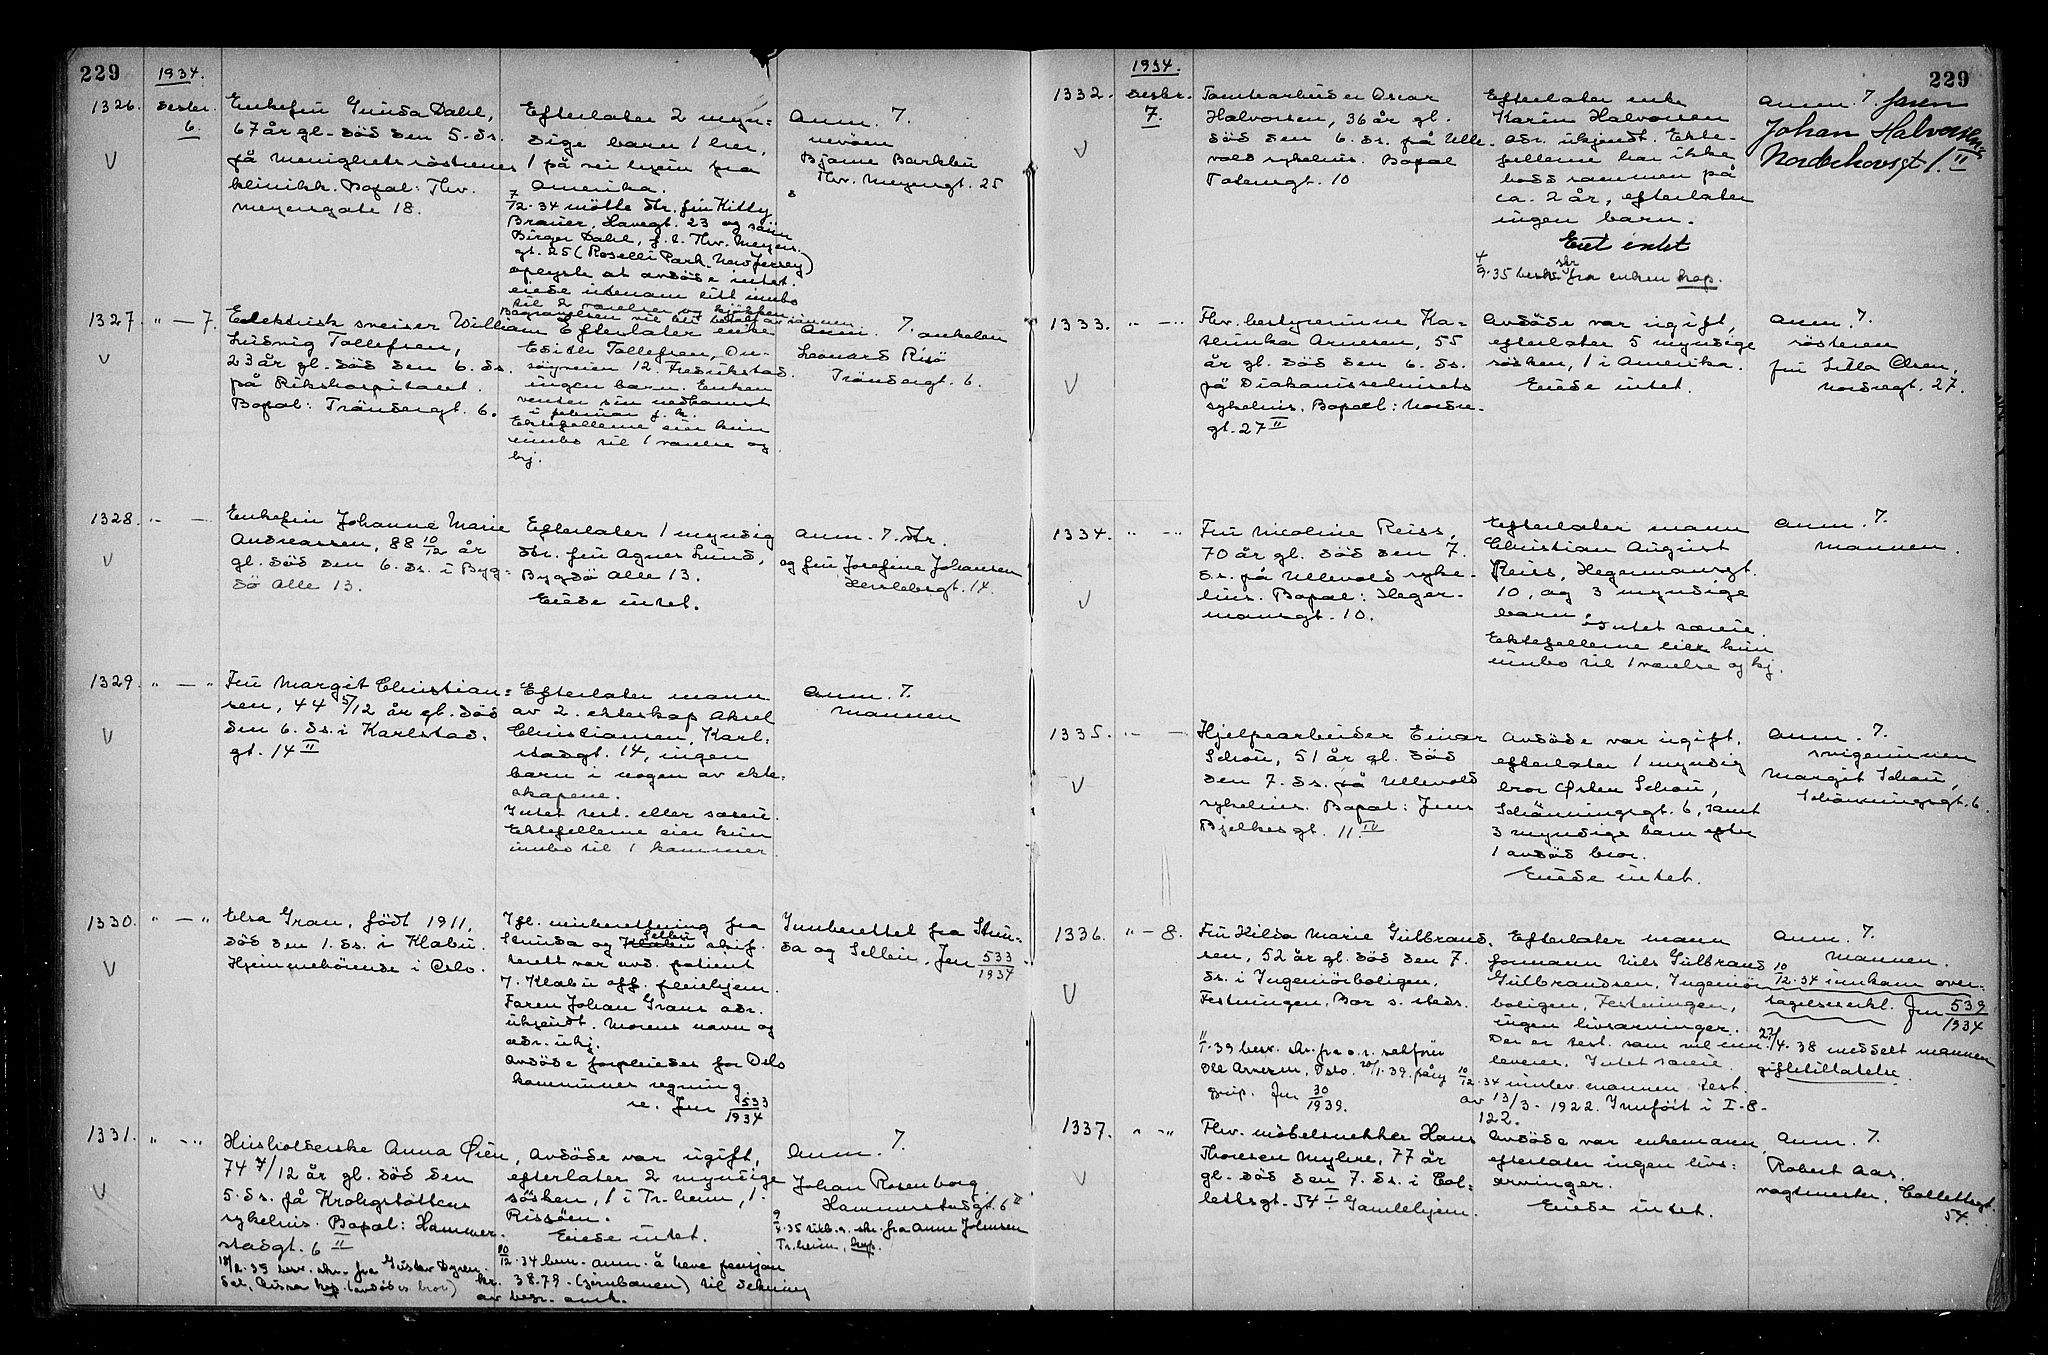 229
1934.
1326. Desbr. 6.
Enkefru Gunda Dahl,
67 år gl. död den 5. ds.
på Menighetssöstrenes
klinikk. Bopæl: Thv.
Meyersgate 18.
Efterlater 2 myn-
dige barn 1 her,
1 på vei hjem fra
Amerika.
7/12-34 mötte dtr. fru Kitty
Brauer, Lavegt. 23 og sönn
Birger Dahl, f. t. Thv. Meyers
gt. 25 (Roselli Park. New Jersey)
oplyste at avdöde intet
eiede utenom litt innbo
til 2 værelser og kjökken
Anm. 7.
nevöen
Bjarne Barklui
Thv. Meyersgt. 25
1327. " — 7.
Elektrisk sveiser William
Ludvig Tollefsen,
23 år gl. död den 6. ds.
på Rikshospitalet.
Bopæl: Tröndergt. 6.
Efterlater enke
Edith Tollefsen, On-
söyveien 12, Fredrikstad.
ingen barn. Enken
venter sin nedkomst
i februar f. k.
Ektefellene eier kun
innbo til 1 værelse og
kj.
Anm. 7. onkelen
Leonard Risö
Tröndergt. 6.
1328. " — "
Enkefru Johanne Marie
Andreassen, 88 10/12 år
gl. död den 6. ds. i Byg-
dö Alle 13.
Efterlater 1 myndig
dtr. fru Agnes Lund,
Bygdö Alle 13.
Eiede intet.
Anm. 7. dtr.
og fru Josefine Johansen
Herslebsgt. 14
1329. " — "
Fru Margit Christian-
sen, 44 5/12 år gl. död
den 6. ds. i Karlstad-
gt. 14 II
Efterlater mann
av 2. ekteskap Aksel
Christiansen, Karl-
stadgt. 14, ingen
barn i nogen av ekte-
skapene.
Intet test. eller særeie.
Ektefellene eier kun
innbo til 1 kammer
Anm. 7.
Mannen
1330. " — "
Elsa Gran, född 1911,
död den 1. ds. i Klæbu.
Hjemmehörende i Oslo.
Ifl. innberettning fra
Strinda og Selbu skif-
terett var avd. patient
v. Klæbu off. pleiehjem.
Faren Johan Grans adr.
ukjendt. Morens navn og
adr. ukj.
Avdöde forpleiedes for Oslo
kommunes regning.
se. Jnr 533/1934
Innberettet fra Strin-
da og Selbu. Jnr 533/1934
1331. " — "
Husholderske Anna Öien,
74 7/12 år gl. död den
5. ds. på Krohgstöttens
sykehus. Bopæl: Hammer-
stadgt. 6 II
18/2-35 besv. skr. fra Gustav Öyen.
Avdöde var ugift,
efterlater 2 myndige
sösken, 1 i Tr.heim, 1.
Rissöen.
Eiede intet.
10/12-34 bem. anm. å heve pensjon
kr. 38.79 (jernbanen) til dekning
av begr. omk.
Anm. 7.
Johan Rosenborg
Hammerstadgt. 6 II
9/4-35 skr. fra Anne Johnsen
Tr.heim,
229
1934.
1332. Desbr. 7.
Tomtearbeider Oscar
Halvorsen, 36 år gl.
död den 6. ds. på Ulle-
vold sykehus. Bopæl
Totensgt. 10
Efterlater enke
Karin Halvorsen
adr. ukjendt. Ekte-
fellene har ikke
bodd sammen på
ca. 2 år, efterlater
ingen barn.
Eiet intet
4/9-35 besv. skr fra enken
Anm. 7. faren
Johan Halvorsen
Norderhovsgt 1. II
1333. " — "
Fhv. bestyrerinne Ka-
thinka Arnesen, 55
år gl. död den 6. ds.
på Diakonissehusets
sykehus. Bopæl: Nordre-
gt. 27 II
Avdöde var ugift,
efterlater 5 myndige
sösken, 1 i Amerika.
Eiede intet.
Anm. 7.
sösteren
fru Lilla Olsen,
Nordregt. 27.
1334. " — "
Fru Nicoline Reiss,
70 år gl. död den 7.
ds. på Ullevold syke-
hus. Bopæl: Heger-
mannsgt. 10.
Efterlater mann
Christian August
Reiss, Hegermannsgt.
10, og 3 myndige
barn
Intet særeie.
Ektefellene eier kun
innbo til 1 værelse og kj.
Anm. 7.
Mannen.
1335. " — "
Hjelpearbeider Einar
Schou, 51 år gl. död
den 7. ds. på Ullevold
sykehus. Bopæl: Jens
Bjelkesgt. 11. IV
Avdöde var ugift,
efterlater 1 myndig
bror Östen Schou,
Schönningsgt. 6, samt
3 myndige barn efter
1 avdöd bror.
Eiede intet.
Anm. 7.
svigerinnen
Margit Schou,
Schönningsgt. 6.
1336. " — 8.
Fru Hilda Marie Gulbrand-
sen, 52 år gl. död den 7.
ds. i Ingeniörboligen,
Festningen. Bor s. steds.
Jnr 30/1939.
Efterlater mann
formann Nils Gulbrand
Gulbrandsen, Ingeniör-
boligen, Festningen,
ingen livsarvinger.
Der er test. som vil inn-
leveres. Intet særeie.
10/12-34 innlev. mannen test.
av 13/3-1922. Innfört i I-8-
122.
Anm. 7.
Mannen.
10/12-34 innkom over-
tagelseserkl. Jnr 539/1934
22/4-38 meddelt mannen
giftetillatelse.
1337. " — "
Fhv. möbelsnekker Hans
Thoresen Myhre, 77 år
gl. död den 7. ds. i Col-
lettsgt. 54 I Gamlehjem.
Avdöde var enkemann,
efterlater ingen livs-
arvinger.
Eiede intet.
Anm. 7.
Robert Aas.
vagtmester, Collettsgt.
54.